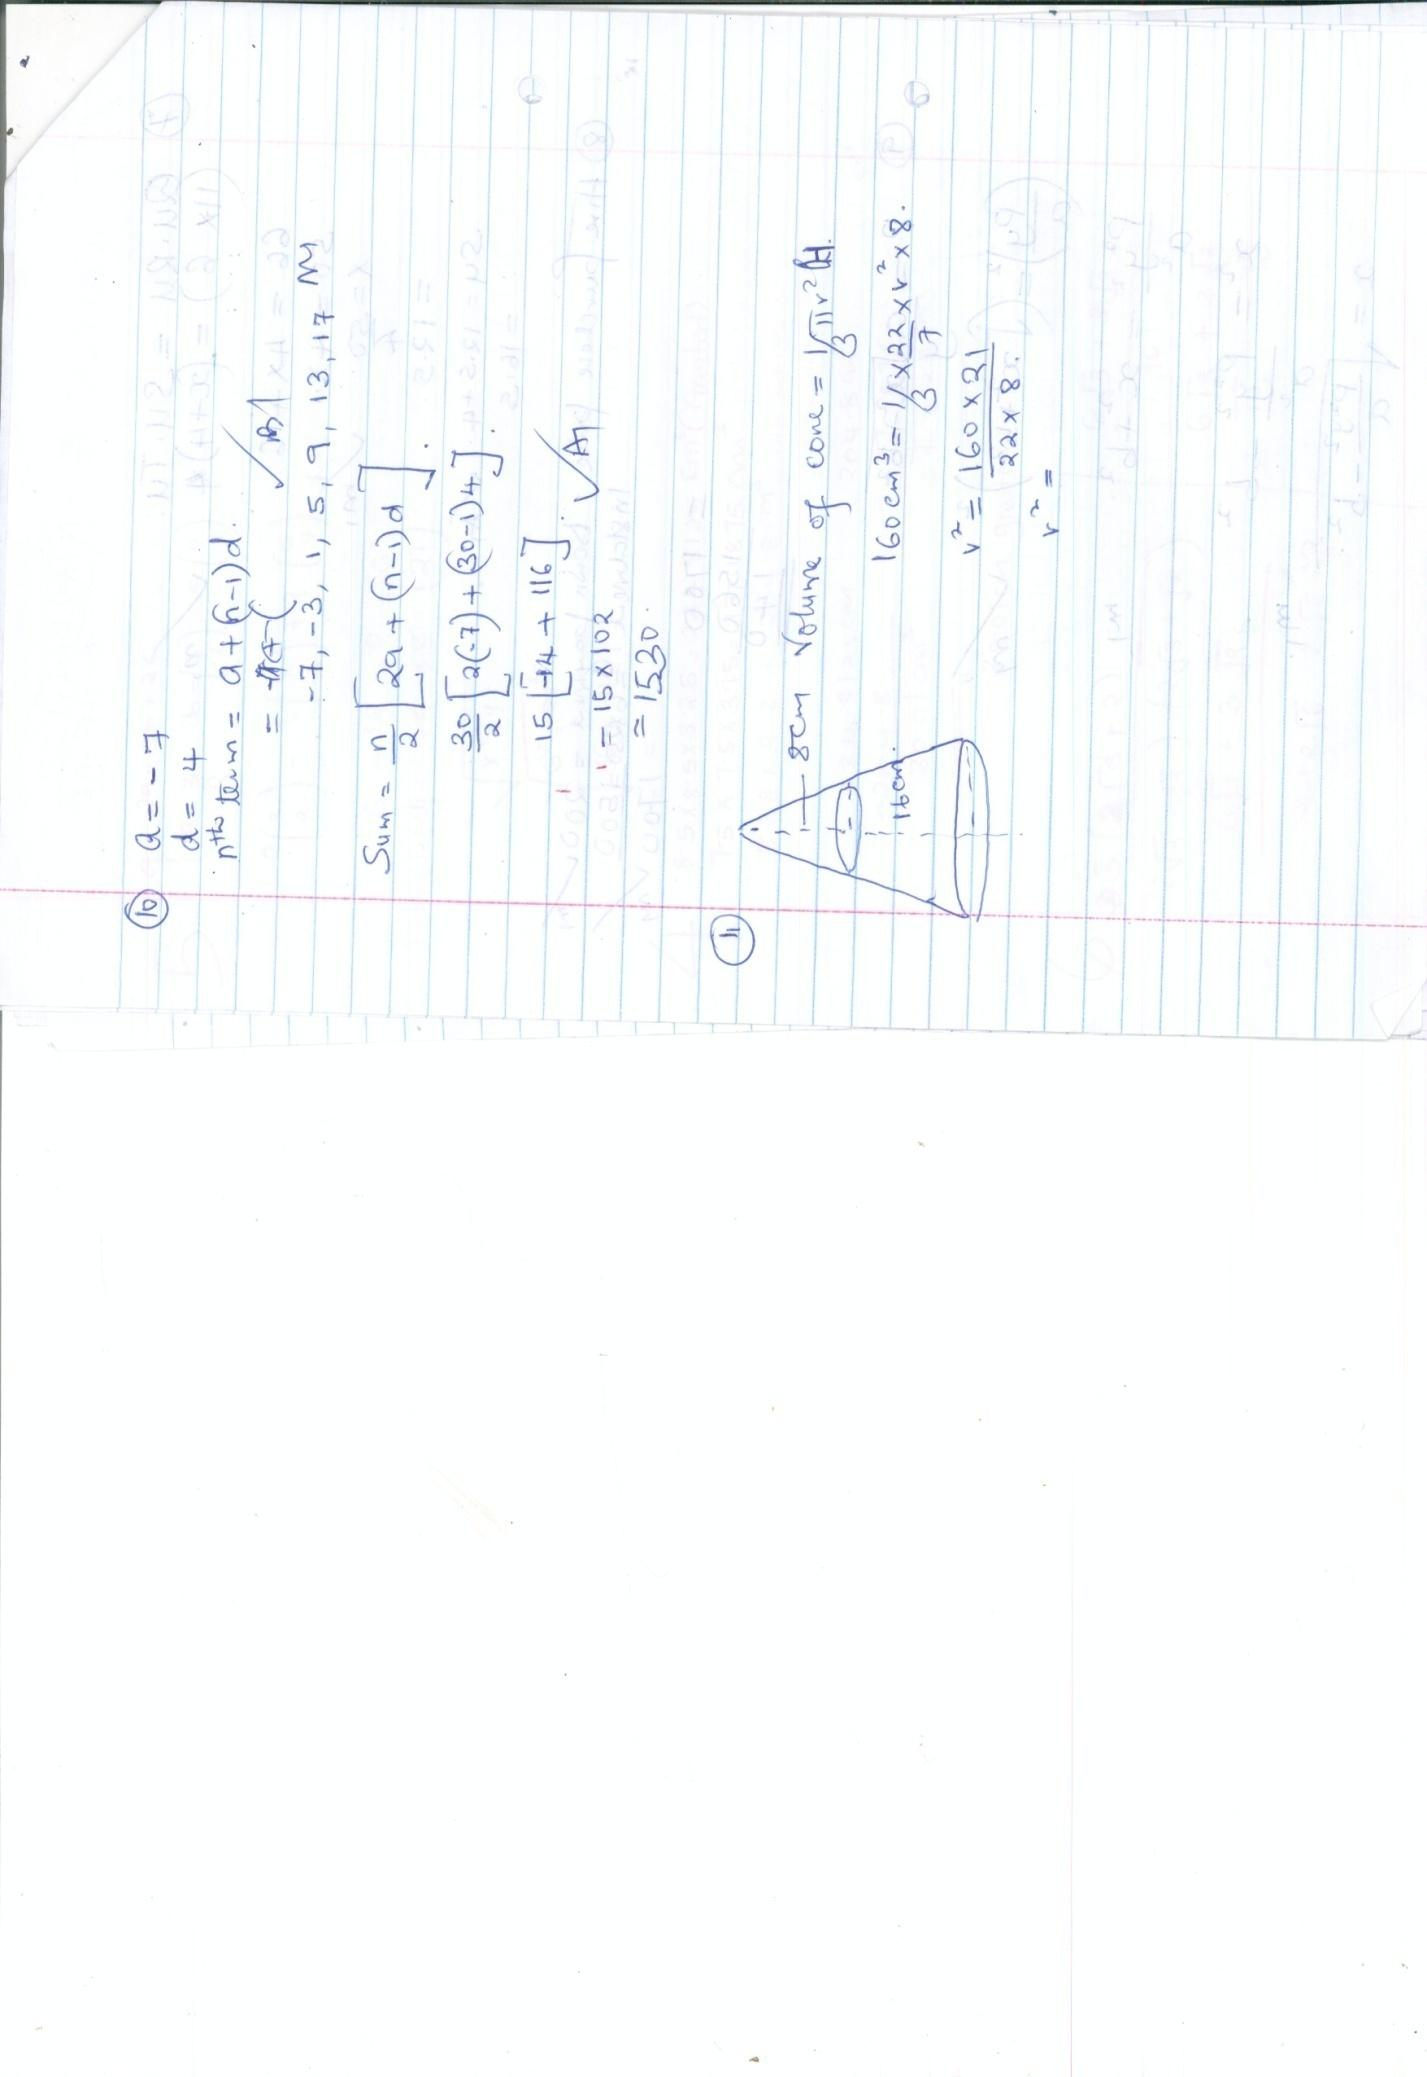 10 a = -7
d = 4
nth term = a + (n-1)d.
= (
B1
-7, -3, 1, 5, 9, 13, 17 M1
Sum = n/2 [2a + (n-1)d].
30/2 [2(-7) + (30-1)4].
15 [-14 + 116].
A1
= 15 x 102
= 1530.
11
8cm
16cm.
Volume of cone = 1/3 πr² H.
160cm³ = 1/3 x 22/7 x r² x 8.
r² = 160 x 21 / 22 x 8.
r² =